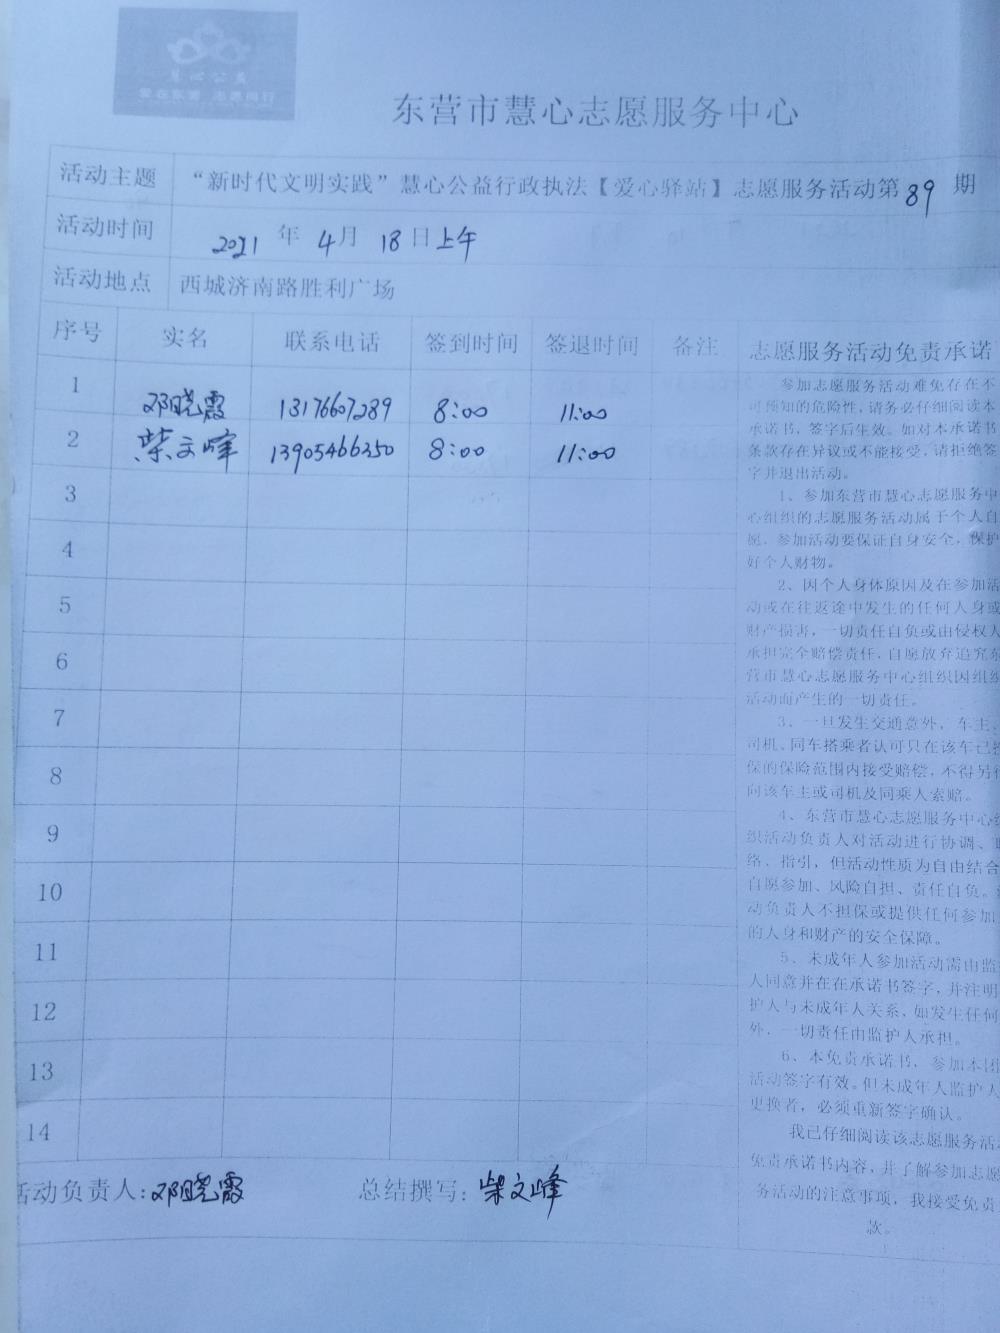 慧心公益
爱在东营 志愿同行
东营市慧心志愿服务中心
活动主题 “新时代文明实践”慧心公益行政执法【爱心驿站】志愿服务活动第89期
活动时间 2021年4月18日上午
活动地点 西城济南路胜利广场
序号 实名 联系电话 签到时间 签退时间 备注
1 邓晓霞 13176607289 8:00 11:00
2 柴文峰 13905466350 8:00 11:00
3
4
5
6
7
8
9
10
11
12
13
14
志愿服务活动免责承诺
参加志愿服务活动难免存在不
可预知的危险性,请务必仔细阅读本
承诺书,签字后生效。如对本承诺书
条款存在异议或不能接受,请拒绝签
字并退出活动。
1、参加东营市慧心志愿服务中
心组织的志愿服务活动属于个人自
愿,参加活动要保证自身安全,保护
好个人财物。
2、因个人身体原因及在参加活
动或在往返途中发生的任何人身或
财产损害,一切责任自负或由侵权人
承担完全赔偿责任,自愿放弃追究东
营市慧心志愿服务中心组织因组织
活动而产生的一切责任。
3、一旦发生交通意外,车主、
司机、同车搭乘者认可只在该车已投
保的保险范围内接受赔偿,不得另行
向该车主或司机及同乘人索赔。
4、东营市慧心志愿服务中心组
织活动负责人对活动进行协调、联
络、指引,但活动性质为自由结合
自愿参加、风险自担、责任自负。
动负责人不担保或提供任何参加
的人身和财产的安全保障。
5、未成年人参加活动需由监
人同意并在在承诺书签字,并注明
护人与未成年人关系,如发生任何
外,一切责任由监护人承担。
6、本免责承诺书,参加本团
活动签字有效。但未成年人监护人
更换者,必须重新签字确认。
我已仔细阅读该志愿服务活
免责承诺书内容,并了解参加志愿
务活动的注意事项,我接受免责
款。
活动负责人:邓晓霞 总结撰写:柴文峰